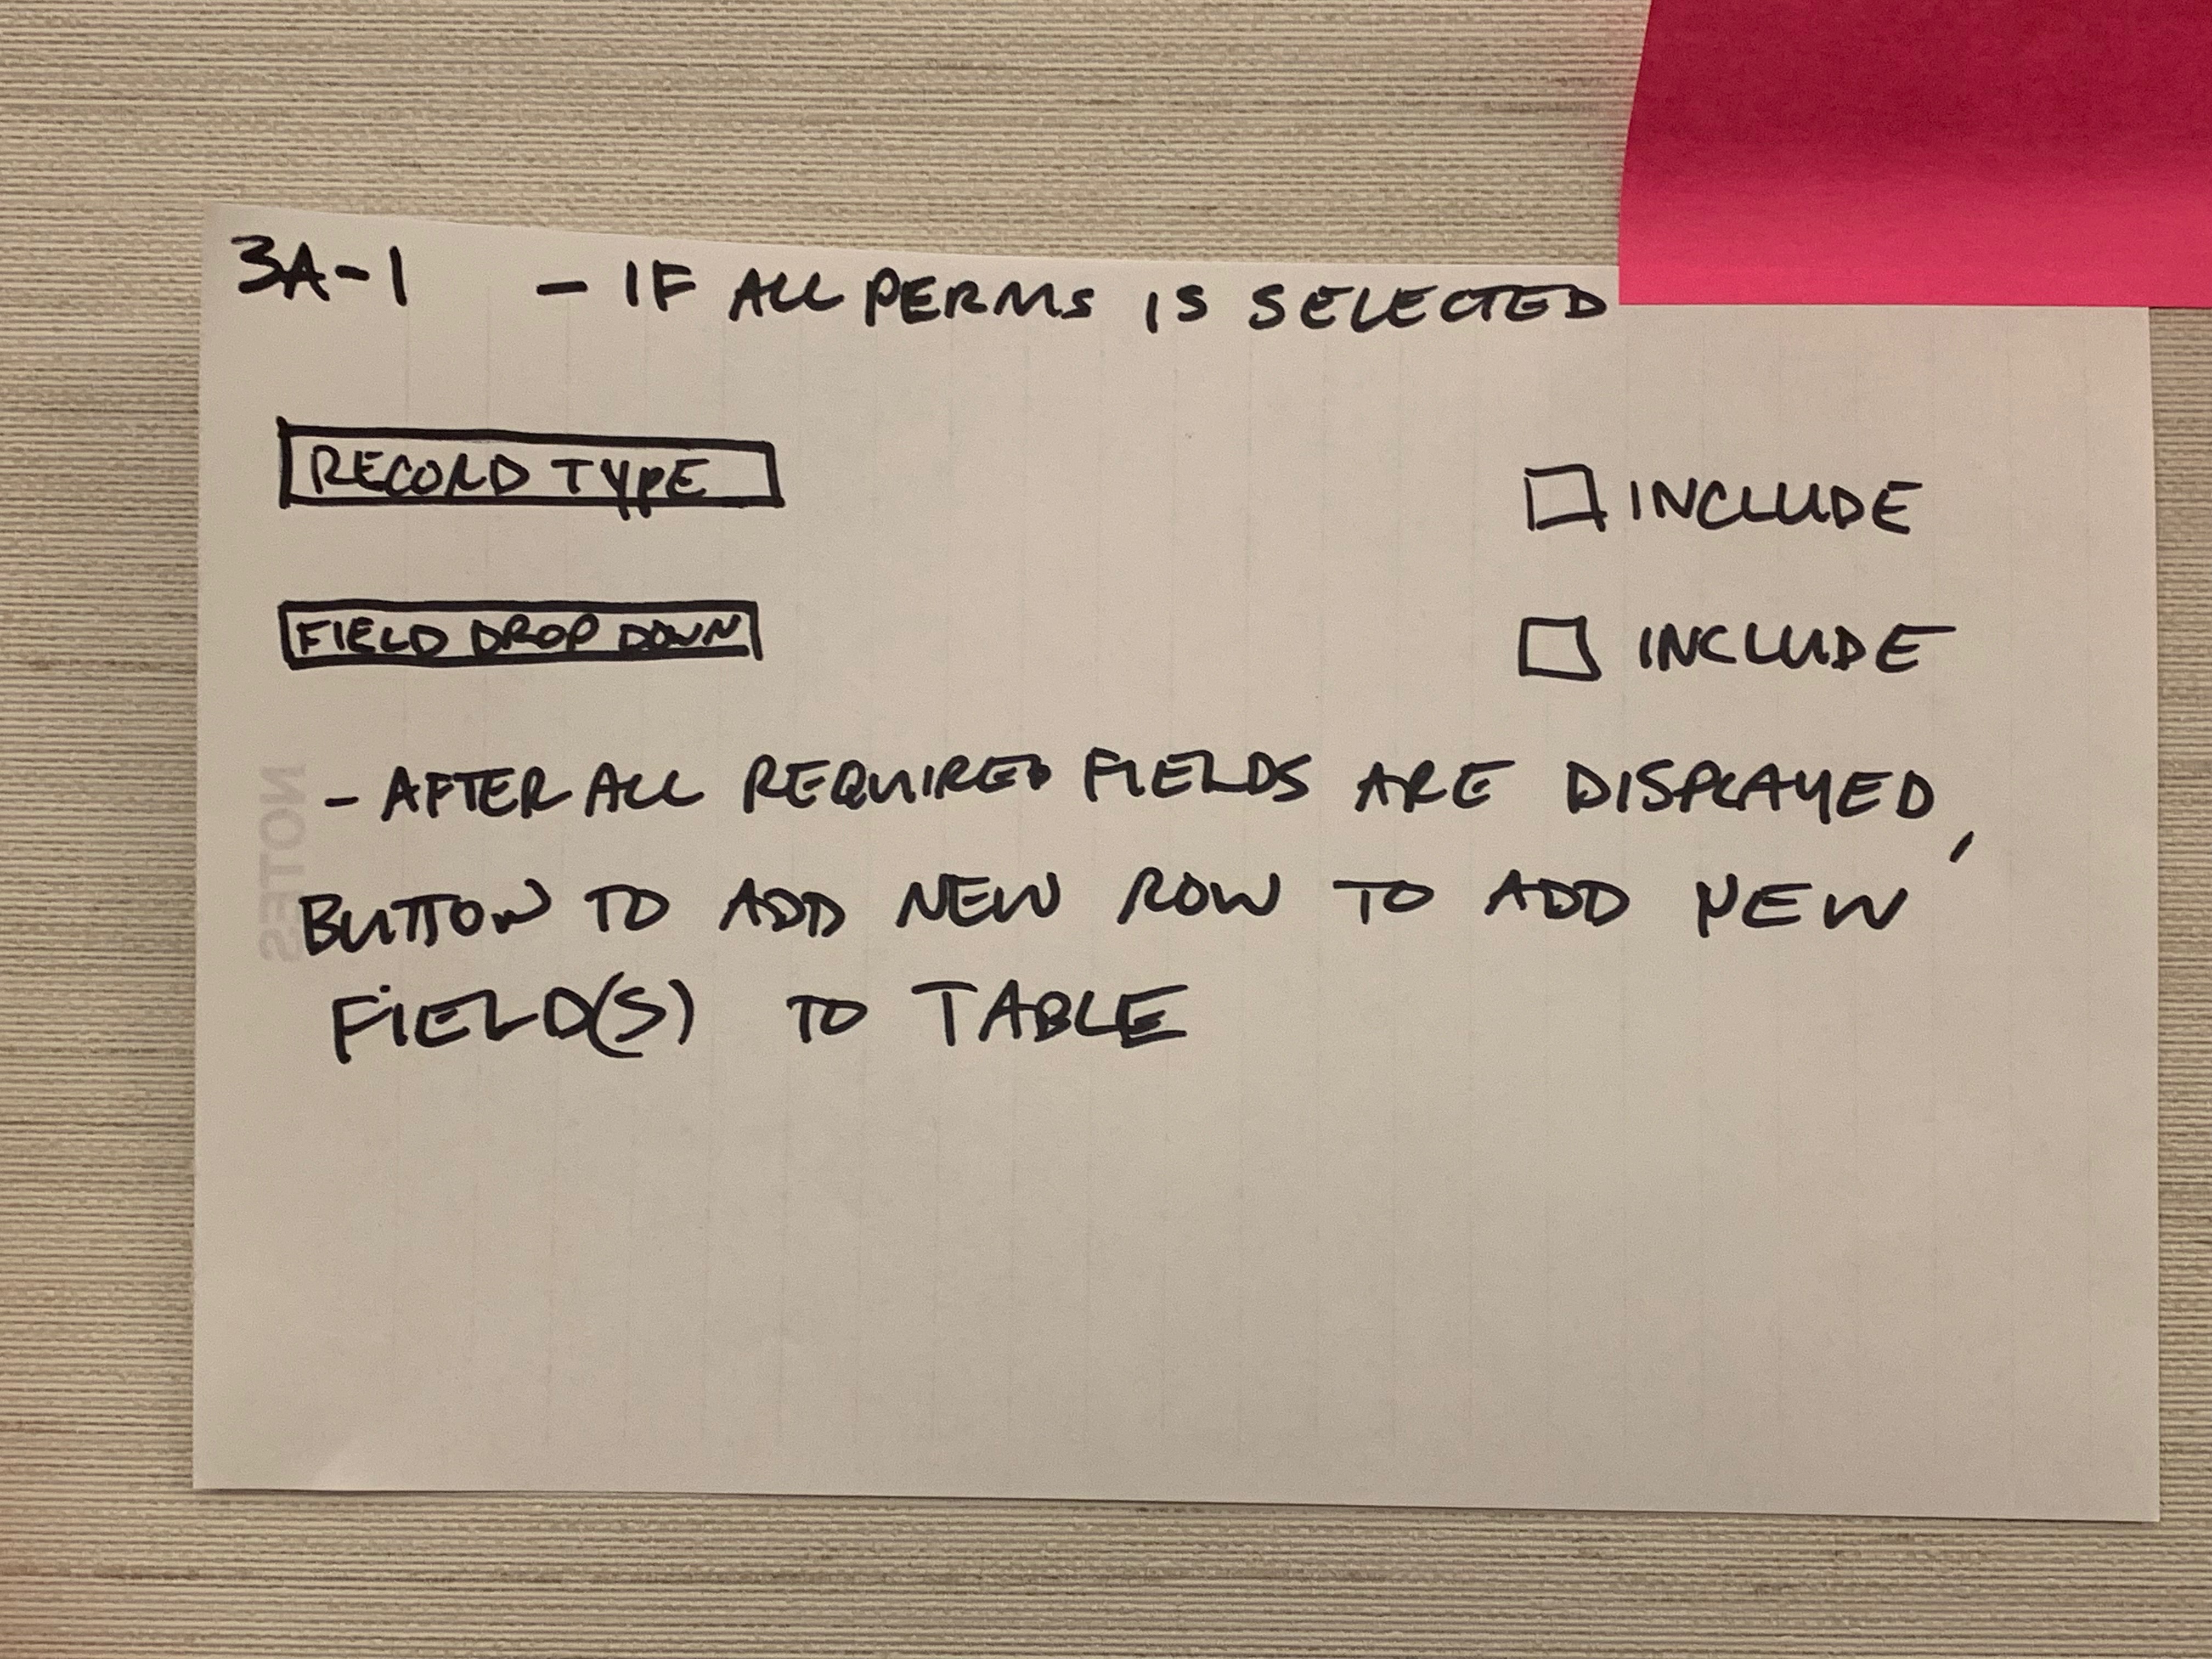 3A-1 - IF ALL PERMS IS SELECTED
RECORD TYPE INCLUDE
FIELD DROP DOWN INCLUDE
- AFTER ALL REQUIRED FIELDS ARE DISPLAYED,
BUTTON TO ADD NEW ROW TO ADD NEW
FIELD(S) TO TABLE
NOTES